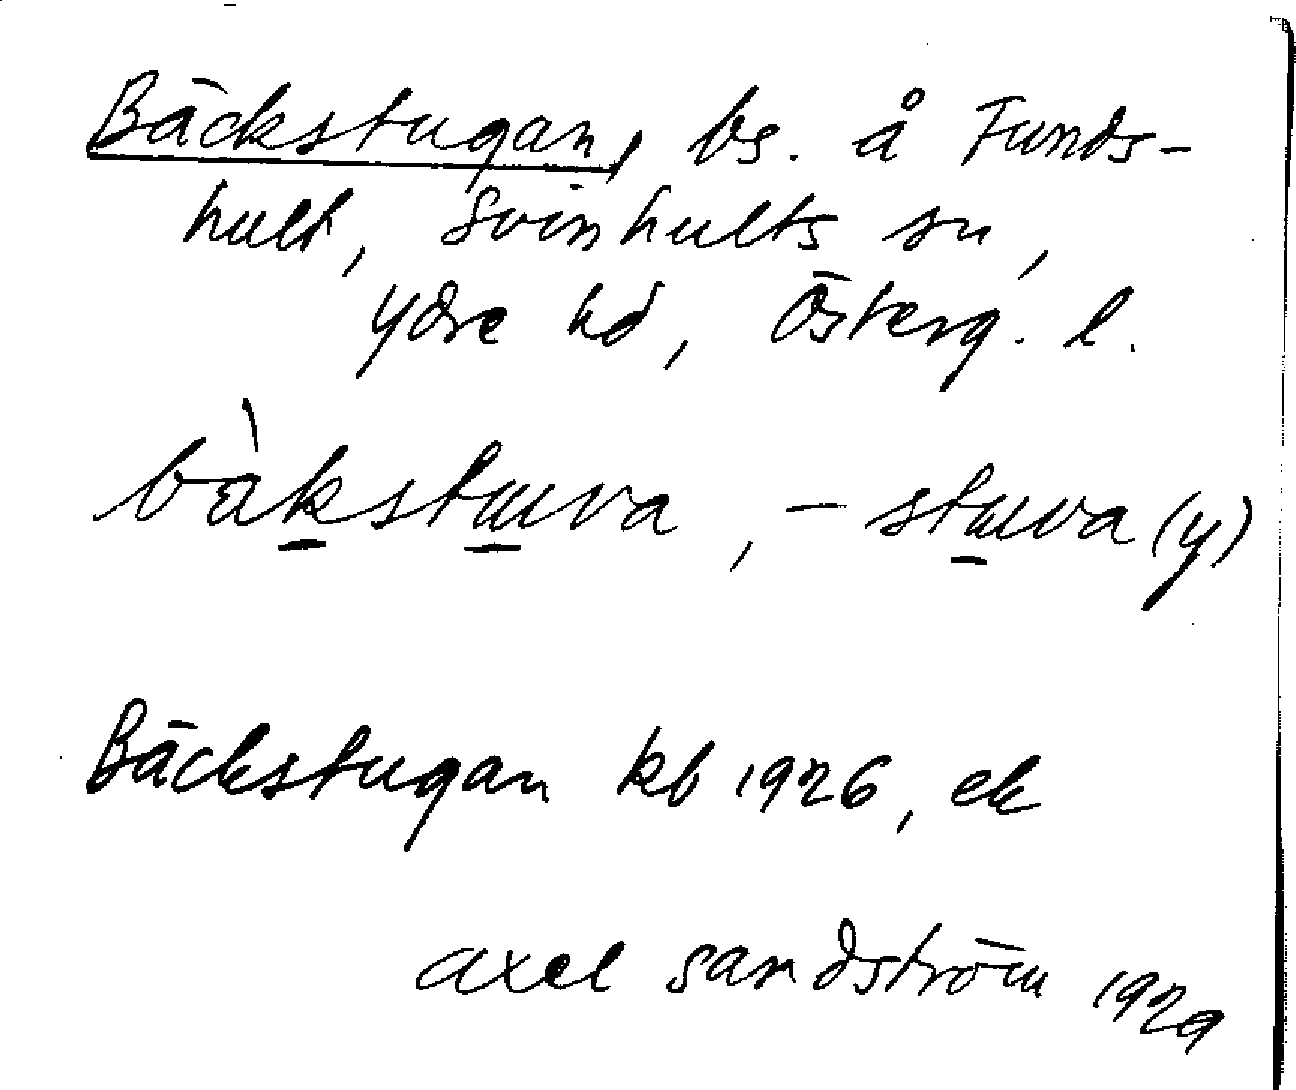 Bäckstugan, bs. å Funds-
hult, Svinhults sn,
Ydre hd, Österg. l.
bàkstuva, - stuva (y)
Bäckstugan kb 1926, ek
Axel Sandström 1929